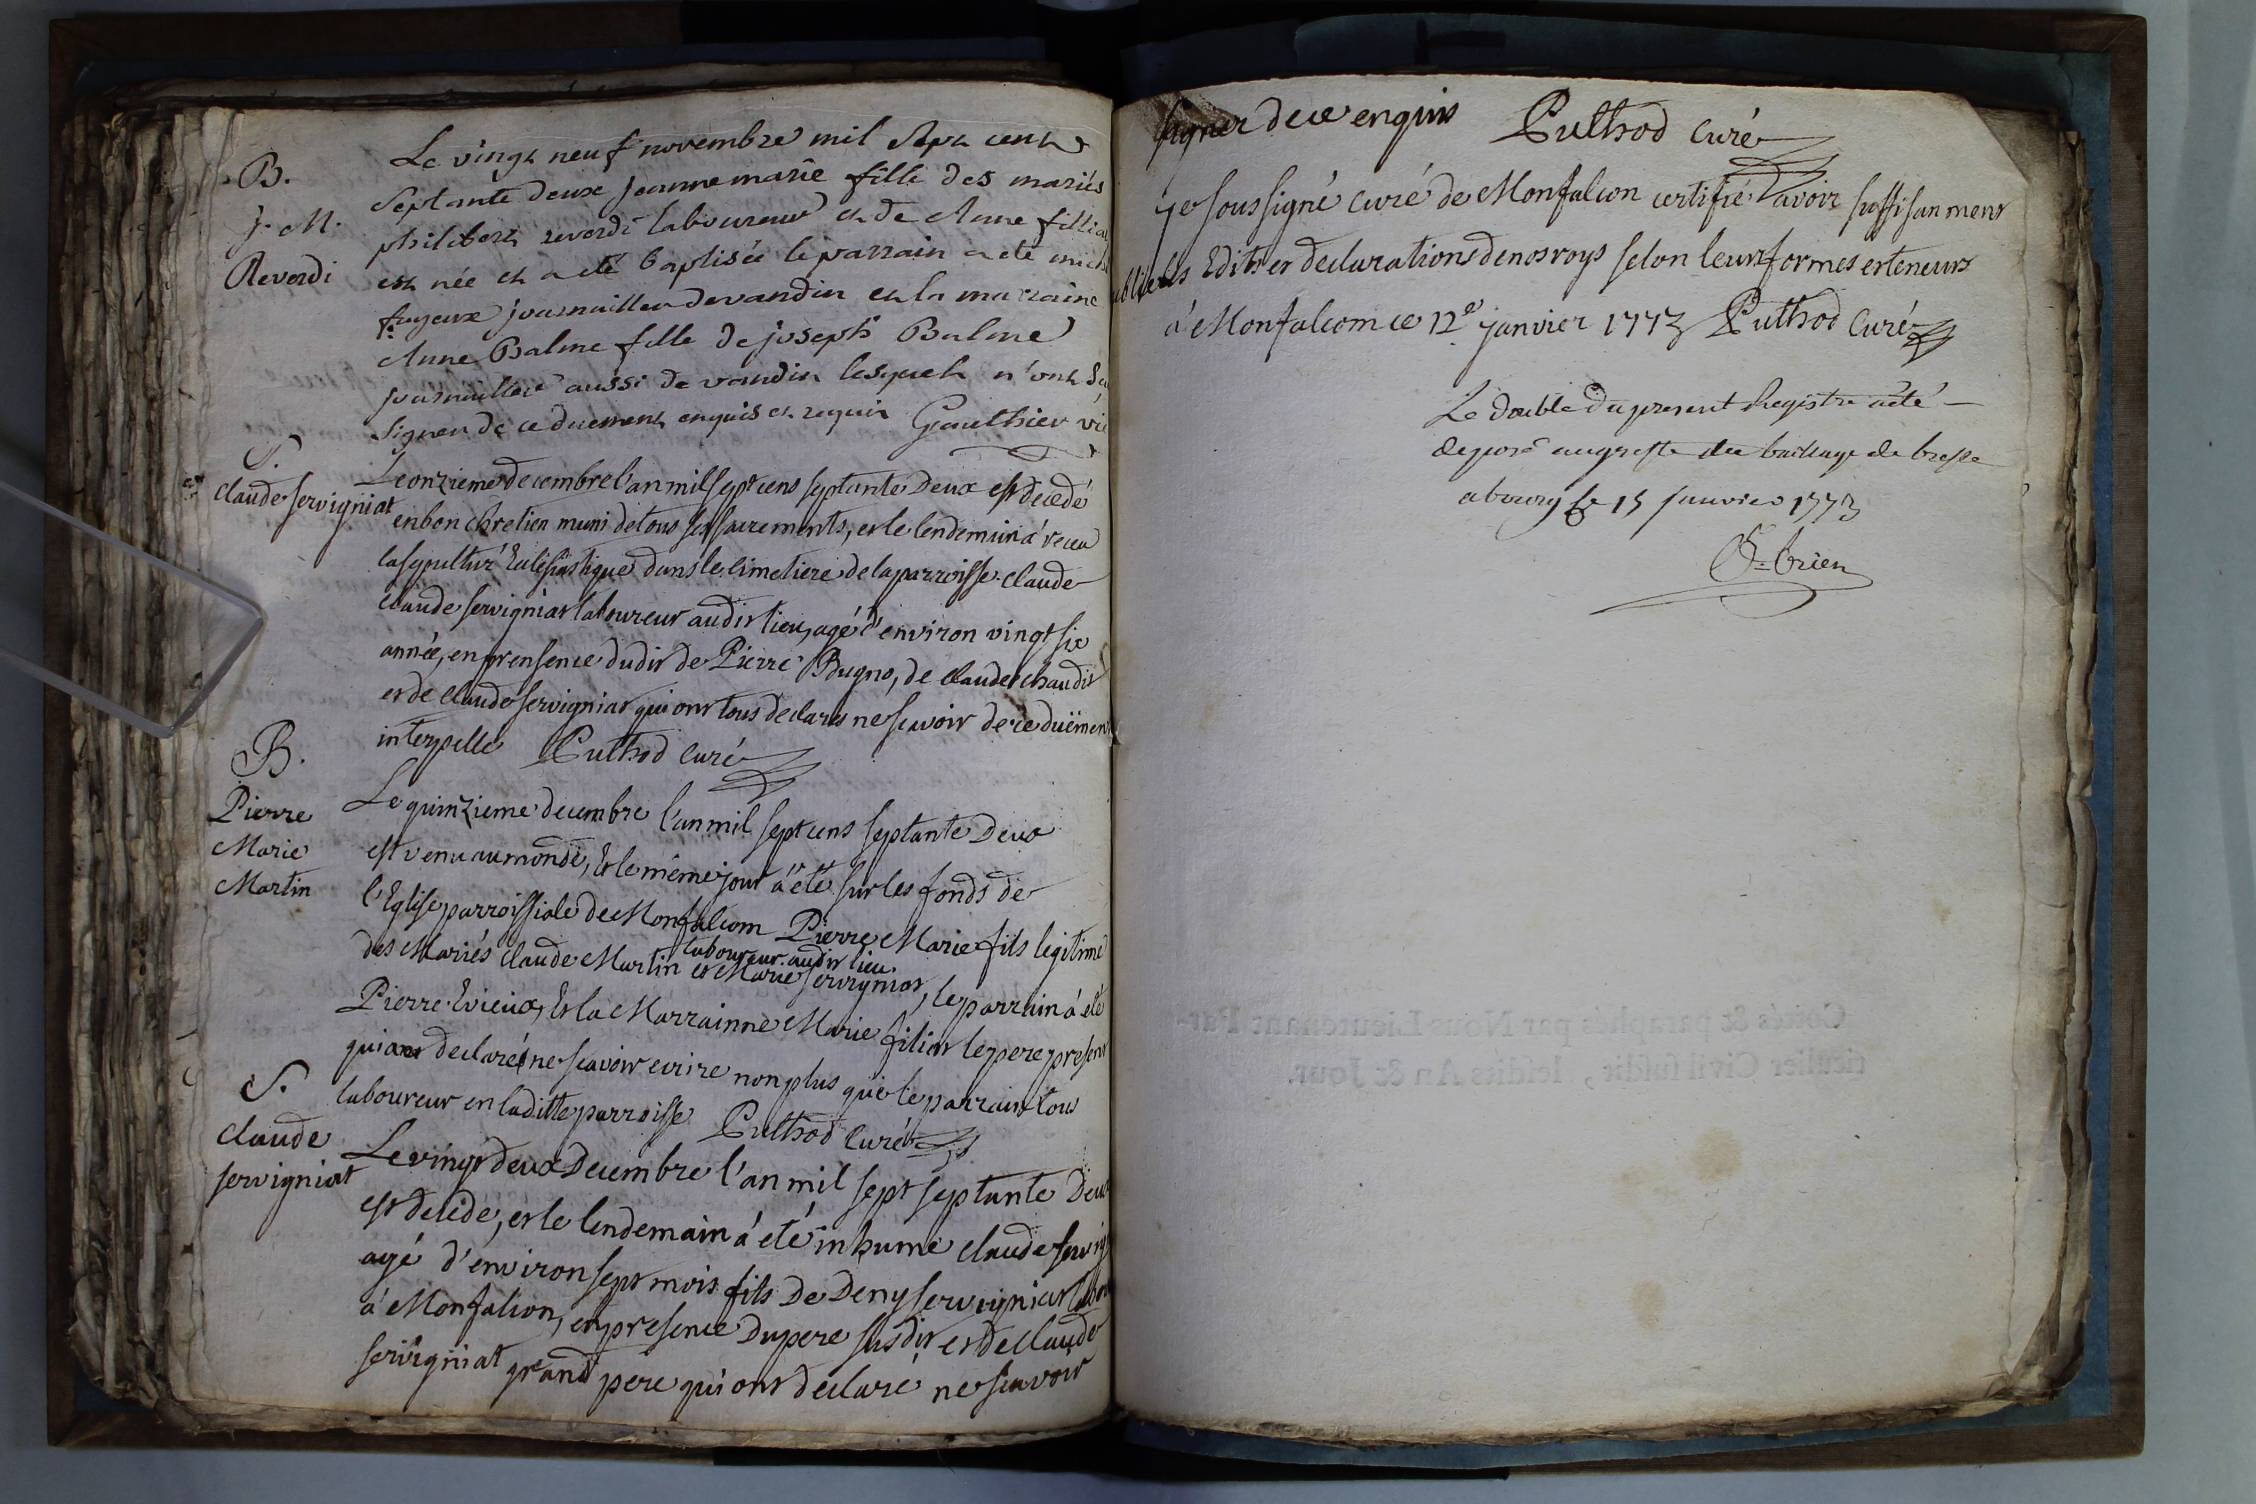 B.
J. M.
Reverdi
Le vingt neuf novembre mil sept cent
septante deux jeanne marie fille des mariés
philibert reverdi laboureur et de Anne fillia
est née et a eté baptisée le parrain a eté
journaillier de vandin et la marraine
Anne Balme fille de joseph Balme
journaillier aussi de vandin lesquels n'ont
signer de ce duement enquis et requis Gauthier vic
S.
claude servigniat
Le onzieme decembre l'an mil sept cens septante Deux est decedé
en bon chretien muni de tous ses sacrements, et le lendemain á receu
la sepulture Eclesiastique dans le cimetiere de la parroisse claude
claude servigniat laboureur audit lieu, agé d'environ vingt six
année, en prensence dudit de Pierre Bugno, de claude chaudit
et de claude servigniat qui ont tous declares ne scavoir de ce duëment
interpelle Puthod Curé
B.
Pierre
Marie
Martin
Le quinzieme decembre l'an mil sept cens septante Deux
est venu au monde, Et le même jour á eté sur les fonds de
l'Eglise parroissiale de Monfalcom Pierre Marie fils legitime
laboureur audit lieu
des Mariés claude Martin et Marie servigniat, le parrain á eté
Pierre Evieux, Et la Marrainne Marie filiat le pere present
qui ont declaré ne scavoir ecrire non plus que le parrain tous
laboureur en la ditte parroisse Puthod Curé
S.
claude
servigniat
Le vingt deux Decembre l'an mil sept septante Deux
est decede, et le lendemain á eté inhumé claude servig
agé d'environ sept mois fils De Deny servigniat
á Monfalcon, en presence Du pere susdit et de claude
servigniat grand pere qui ont declaré ne scavoir
signer de ce enquis Puthod Curé
Je soussigné Curé de Monfalcon certifie avoir suffisanment
les Edits et declarations de nos roys selon leurs formes et teneurs
á Monfalcom ce 12e janvier 1773 Puthod Curé
Le double du present Registre a eté
deposé au greffe du bailliage de bresse
a bourg le 15 janvier 1773
Cottés & paraphés par Nous Lieutenant Par-
ticulier Civil susdit, lesdits An & Jour.